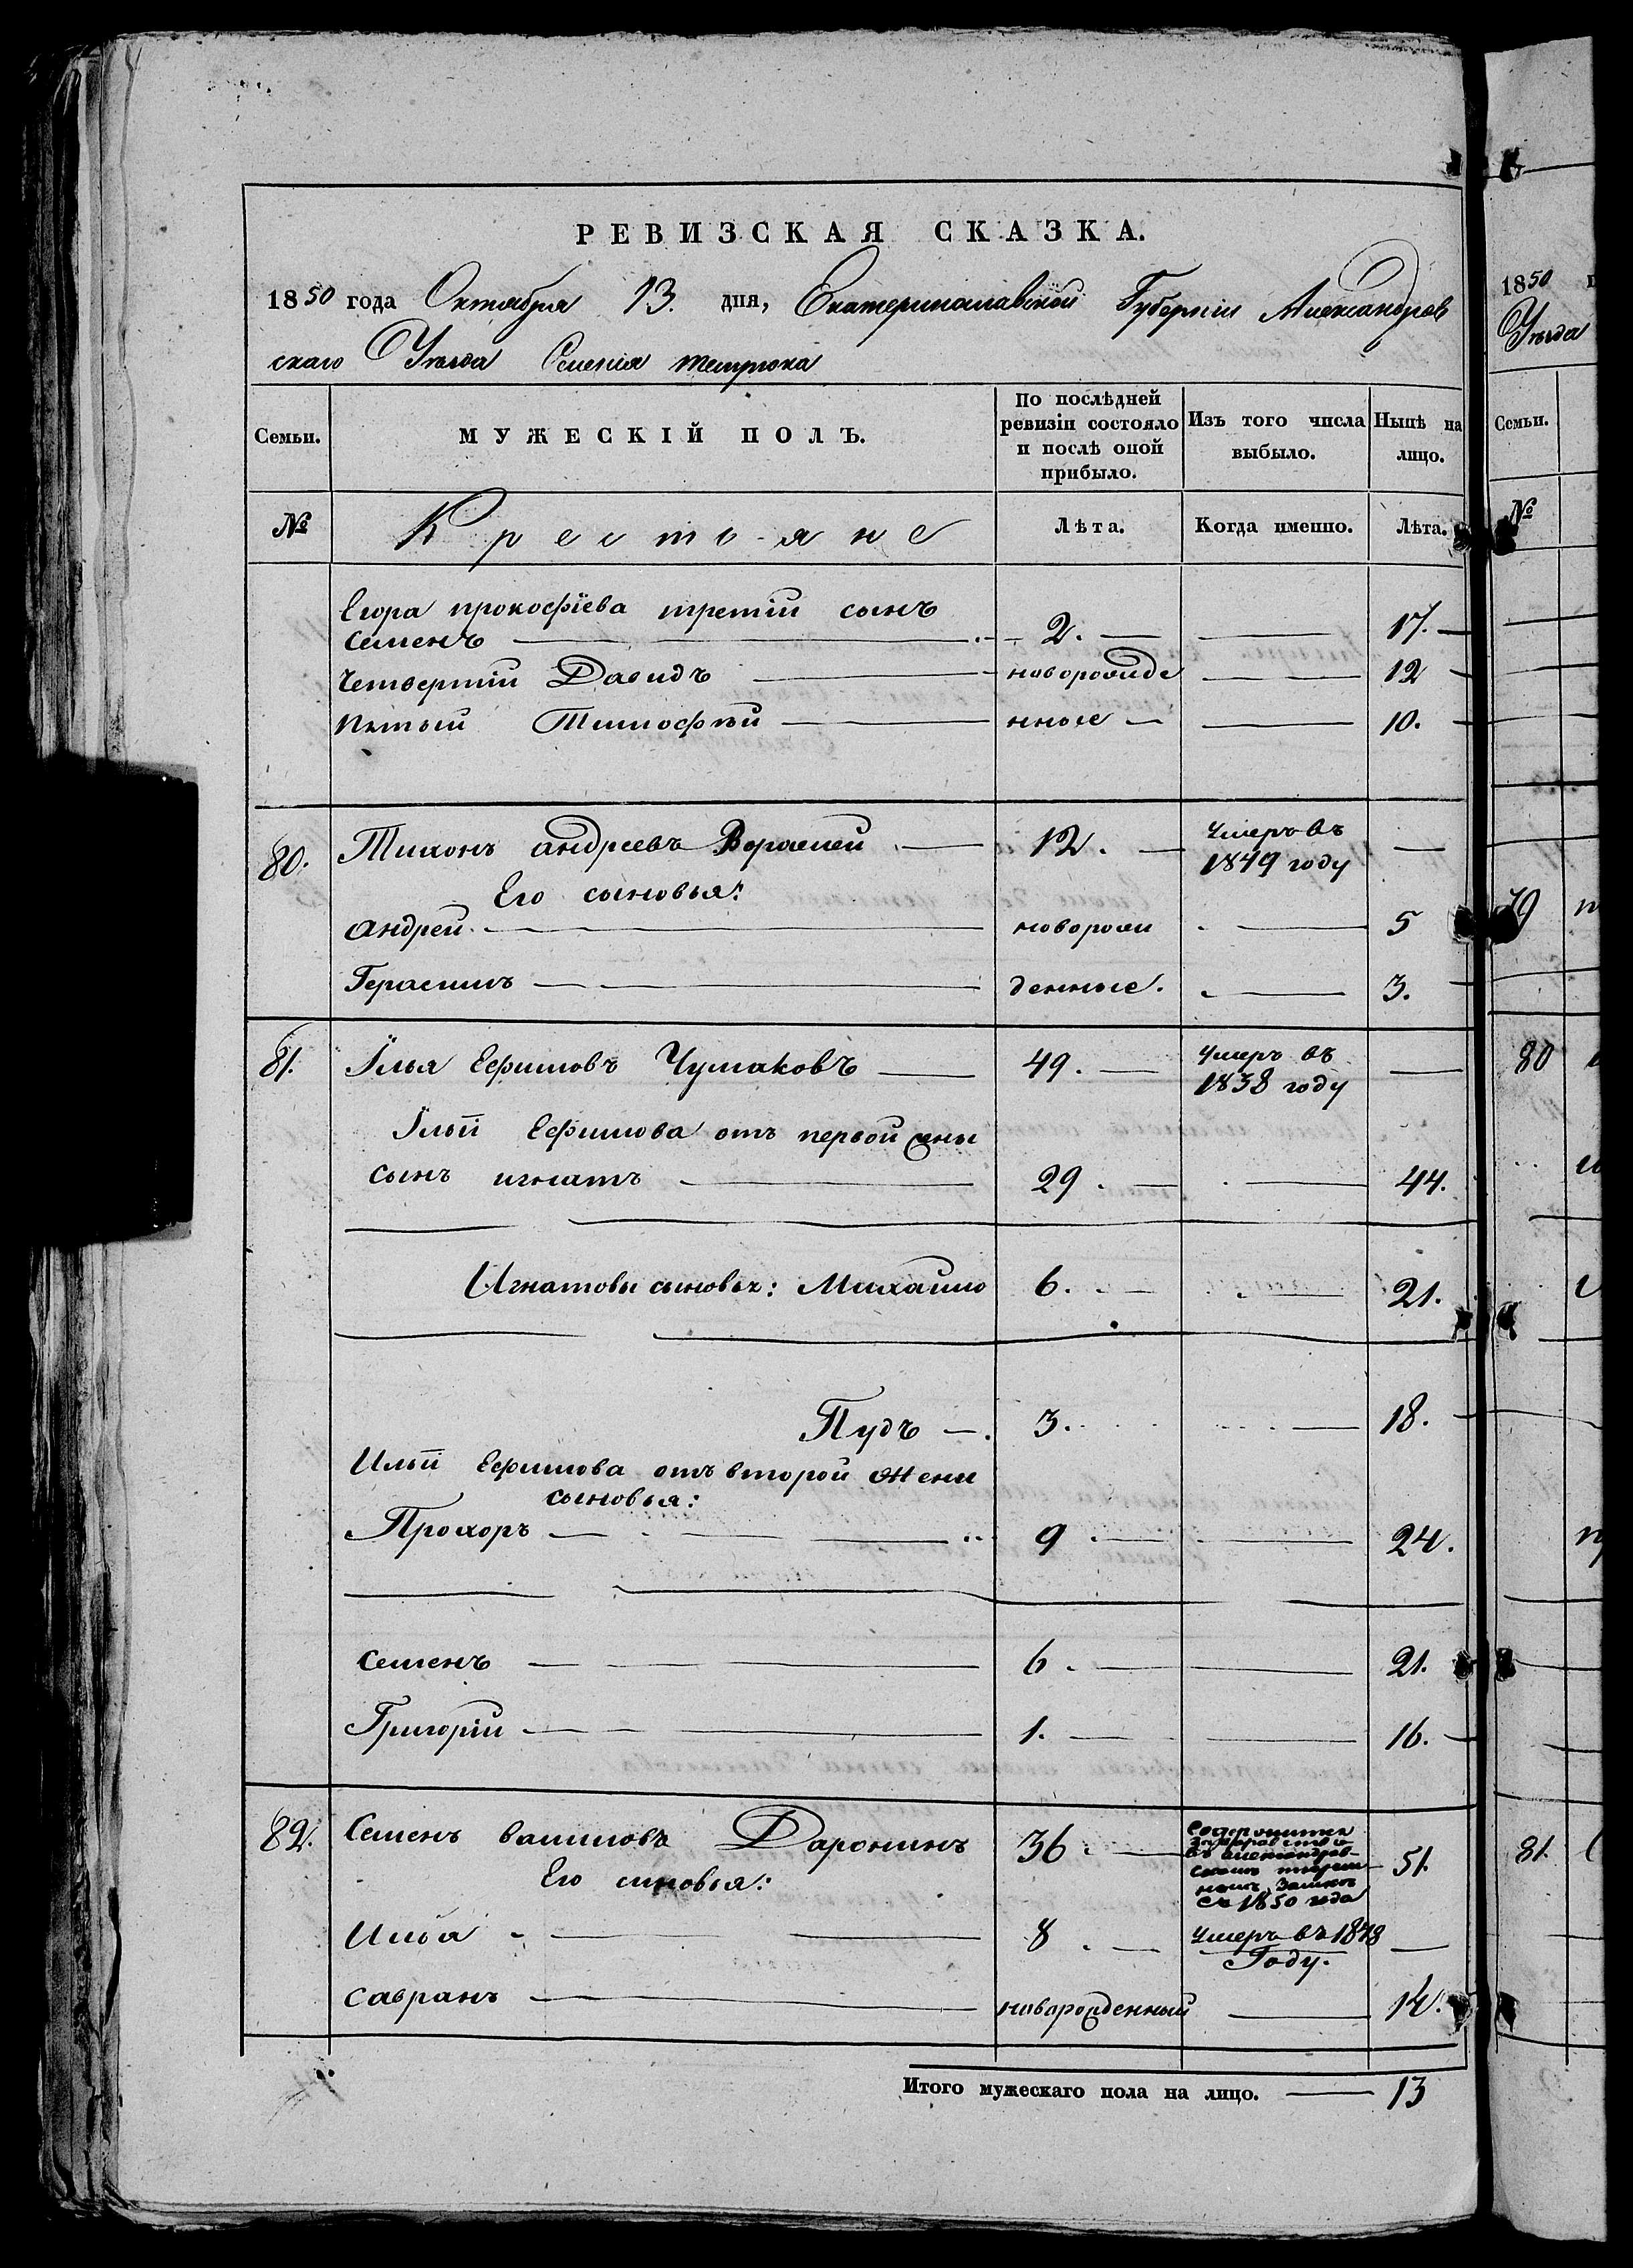 РЕВИЗСКАЯ СКАЗКА.
1850 года Октября 13. дня, Екатеринославской Губерніи Александров
скаго Уѣзда Селенія темрюка
Семьи.
МУЖЕСКІЙ ПОЛЪ.
По послѣдней ревизіи состояло и послѣ оной прибыло.
Изъ того числа выбыло.
Нынѣ на лицо.
№
Крестьяне
Лѣта.
Когда именно.
Лѣта.
Егора прокофіева третій сынъ
семенъ 2. 17.
Четвертій Давидъ новорожде 12
пятый Тимофѣй нные 10.
80. Тихонъ андреевъ 12. Умеръ въ
1849 году
Его сыновья:
андрей новорож 5
Герасимъ денные. 3.
81. Ілья Ефимовъ Чумаковъ 49. Умеръ въ
1838 году
Ільи Ефимова отъ первой жены
сынъ игнатъ 29. 44.
Игнатовы сыновья: Михайло 6. 21.
Пудъ 3. 18.
Ильи Ефимова отъ второй жены
сыновья:
Прохоръ 9 24.
семенъ 6. 21.
Григорій 1. 16.
82. Семенъ Даронинъ 36 Содержится
въ александров-
скомъ тюрем
номъ замкѣ
съ 1850 года
51.
Его сыновья:
Илья 8. Умеръ въ 1848
Году.
савранъ новорожденный 14.
Итого мужескаго пола на лицо. 13
1850
Уѣзда
Семьи.
№
80
81.